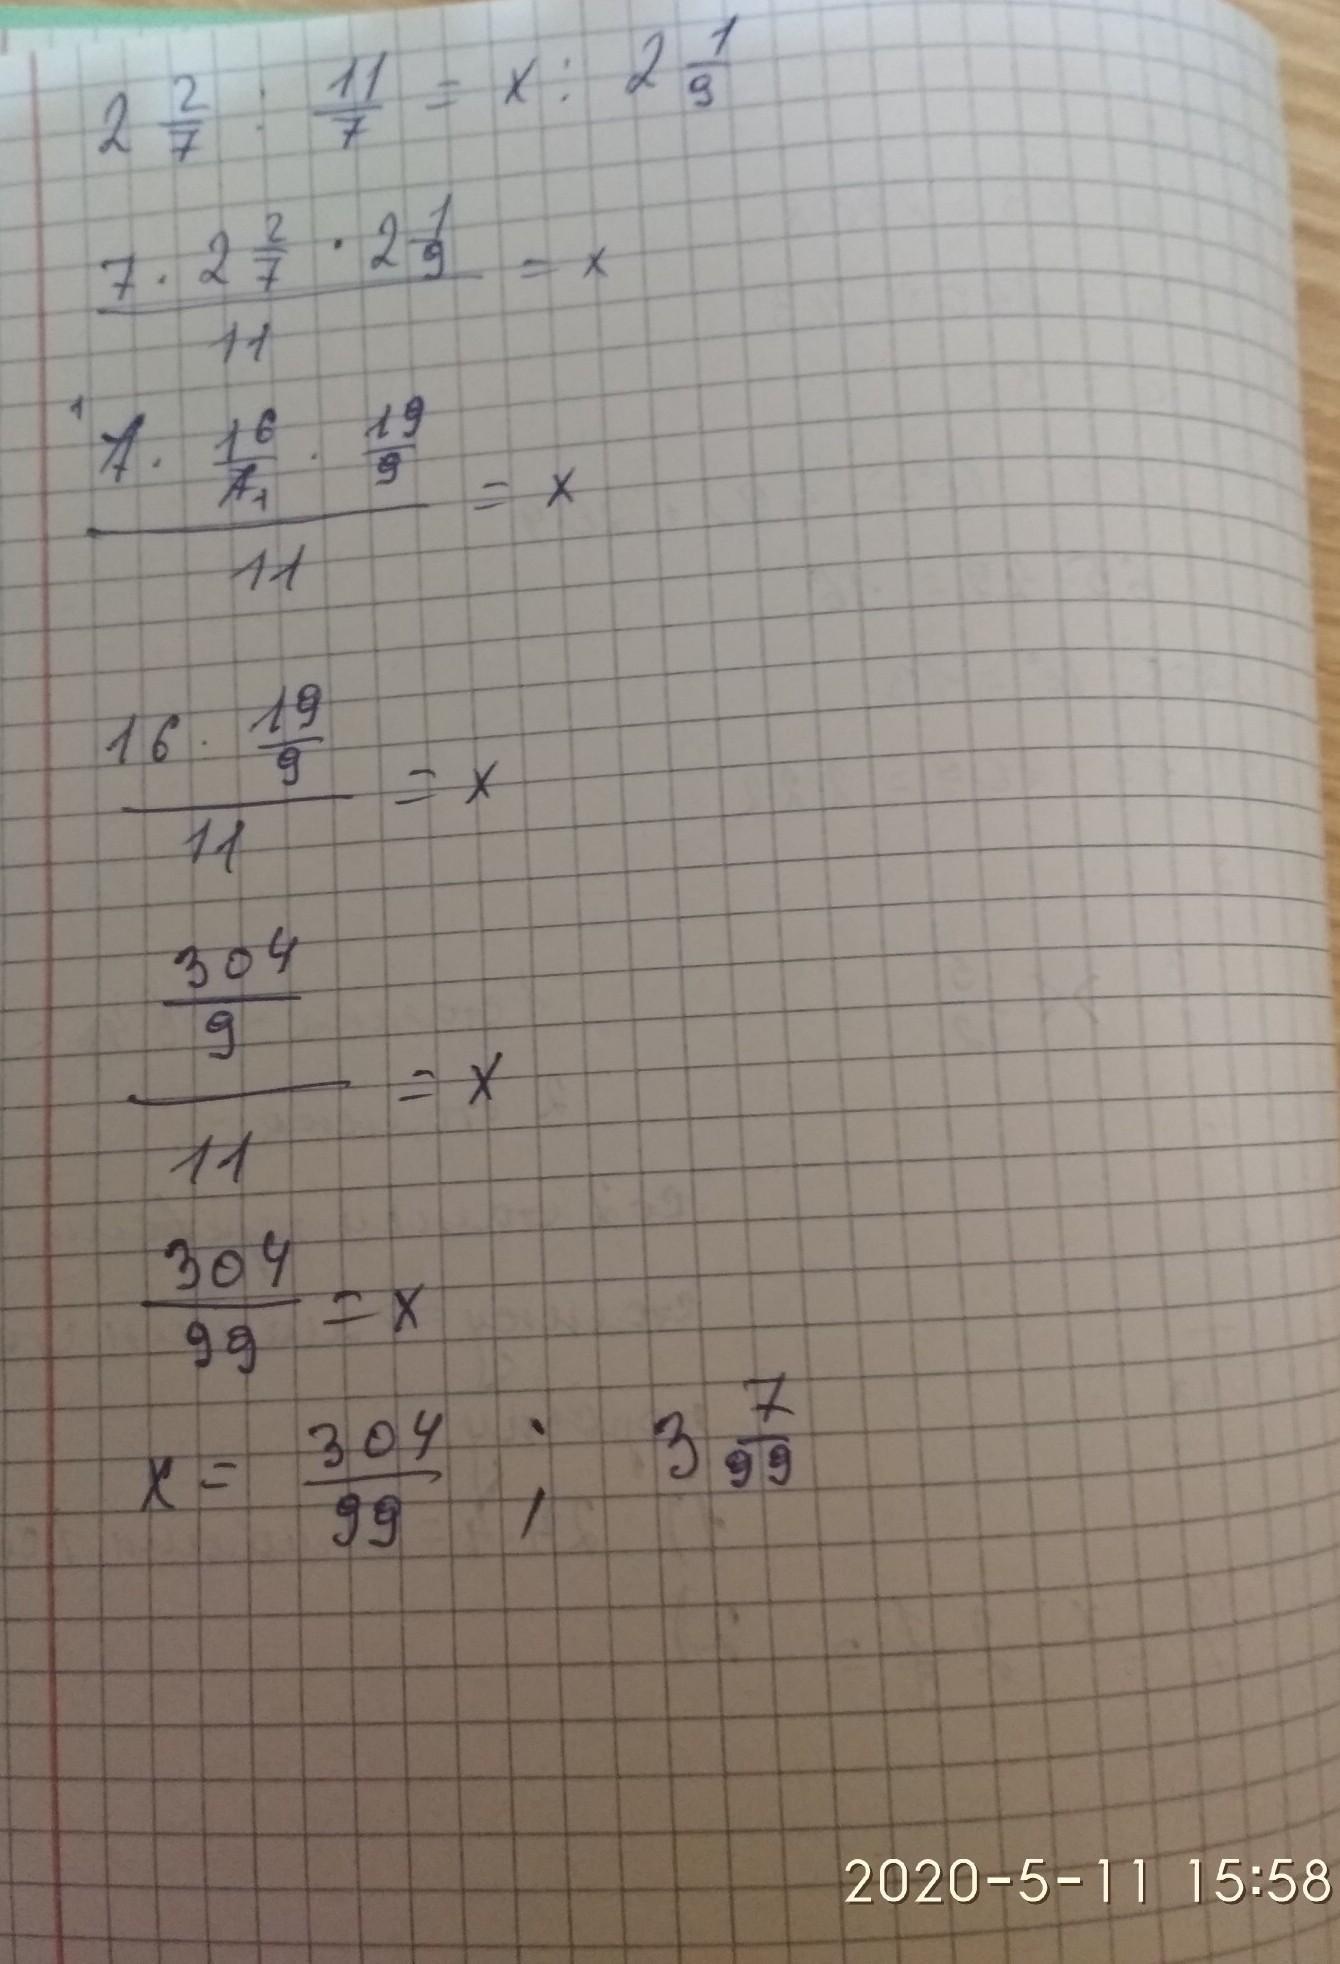 2 2/7 : 11/7 = x : 2 1/9
7 · 2 2/7 · 2 1/9 = x
11
1 7 · 16/7 1 · 19/9 = x
11
16 · 19/9 = x
11
304/9 = x
11
304/99 = x
x = 304/99 ; 3 7/99
2020-5-11 15:58